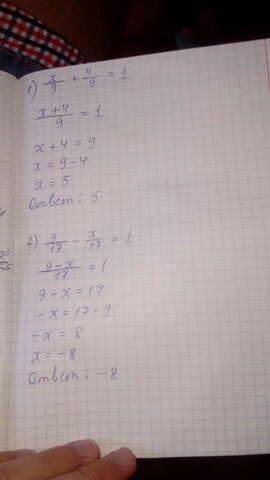 1) x/9 + 4/9 = 1
x+4/9 = 1
x+4 = 9
x = 9-4
x = 5
Ответ: 5
2) 9/17 - x/17 = 1
9-x/17 = 1
9-x = 17
-x = 17-9
-x = 8
x = -8
Ответ: -8